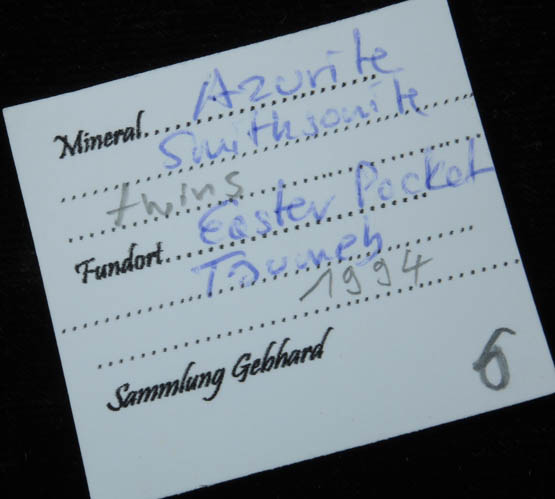 Mineral Azurite
Smithsonite
twins
Fundort Easter Pocket
Tsumeb
1994
Sammlung Gebhard
6